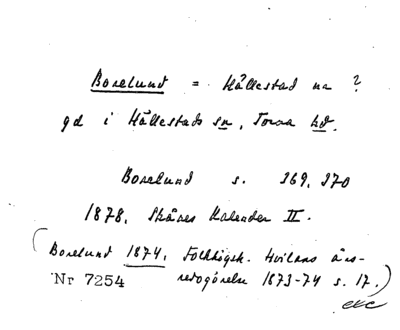 Borelund = Hällestad na ?
gd i Hällestads sn, Torna hd.
Borelund s. 369, 370
1878, Skånes Kalender II.
(Borelund 1874, Folkhögsk. Hvilans års-
Nr 7254 redogörelse 1873-74 s. 17.)